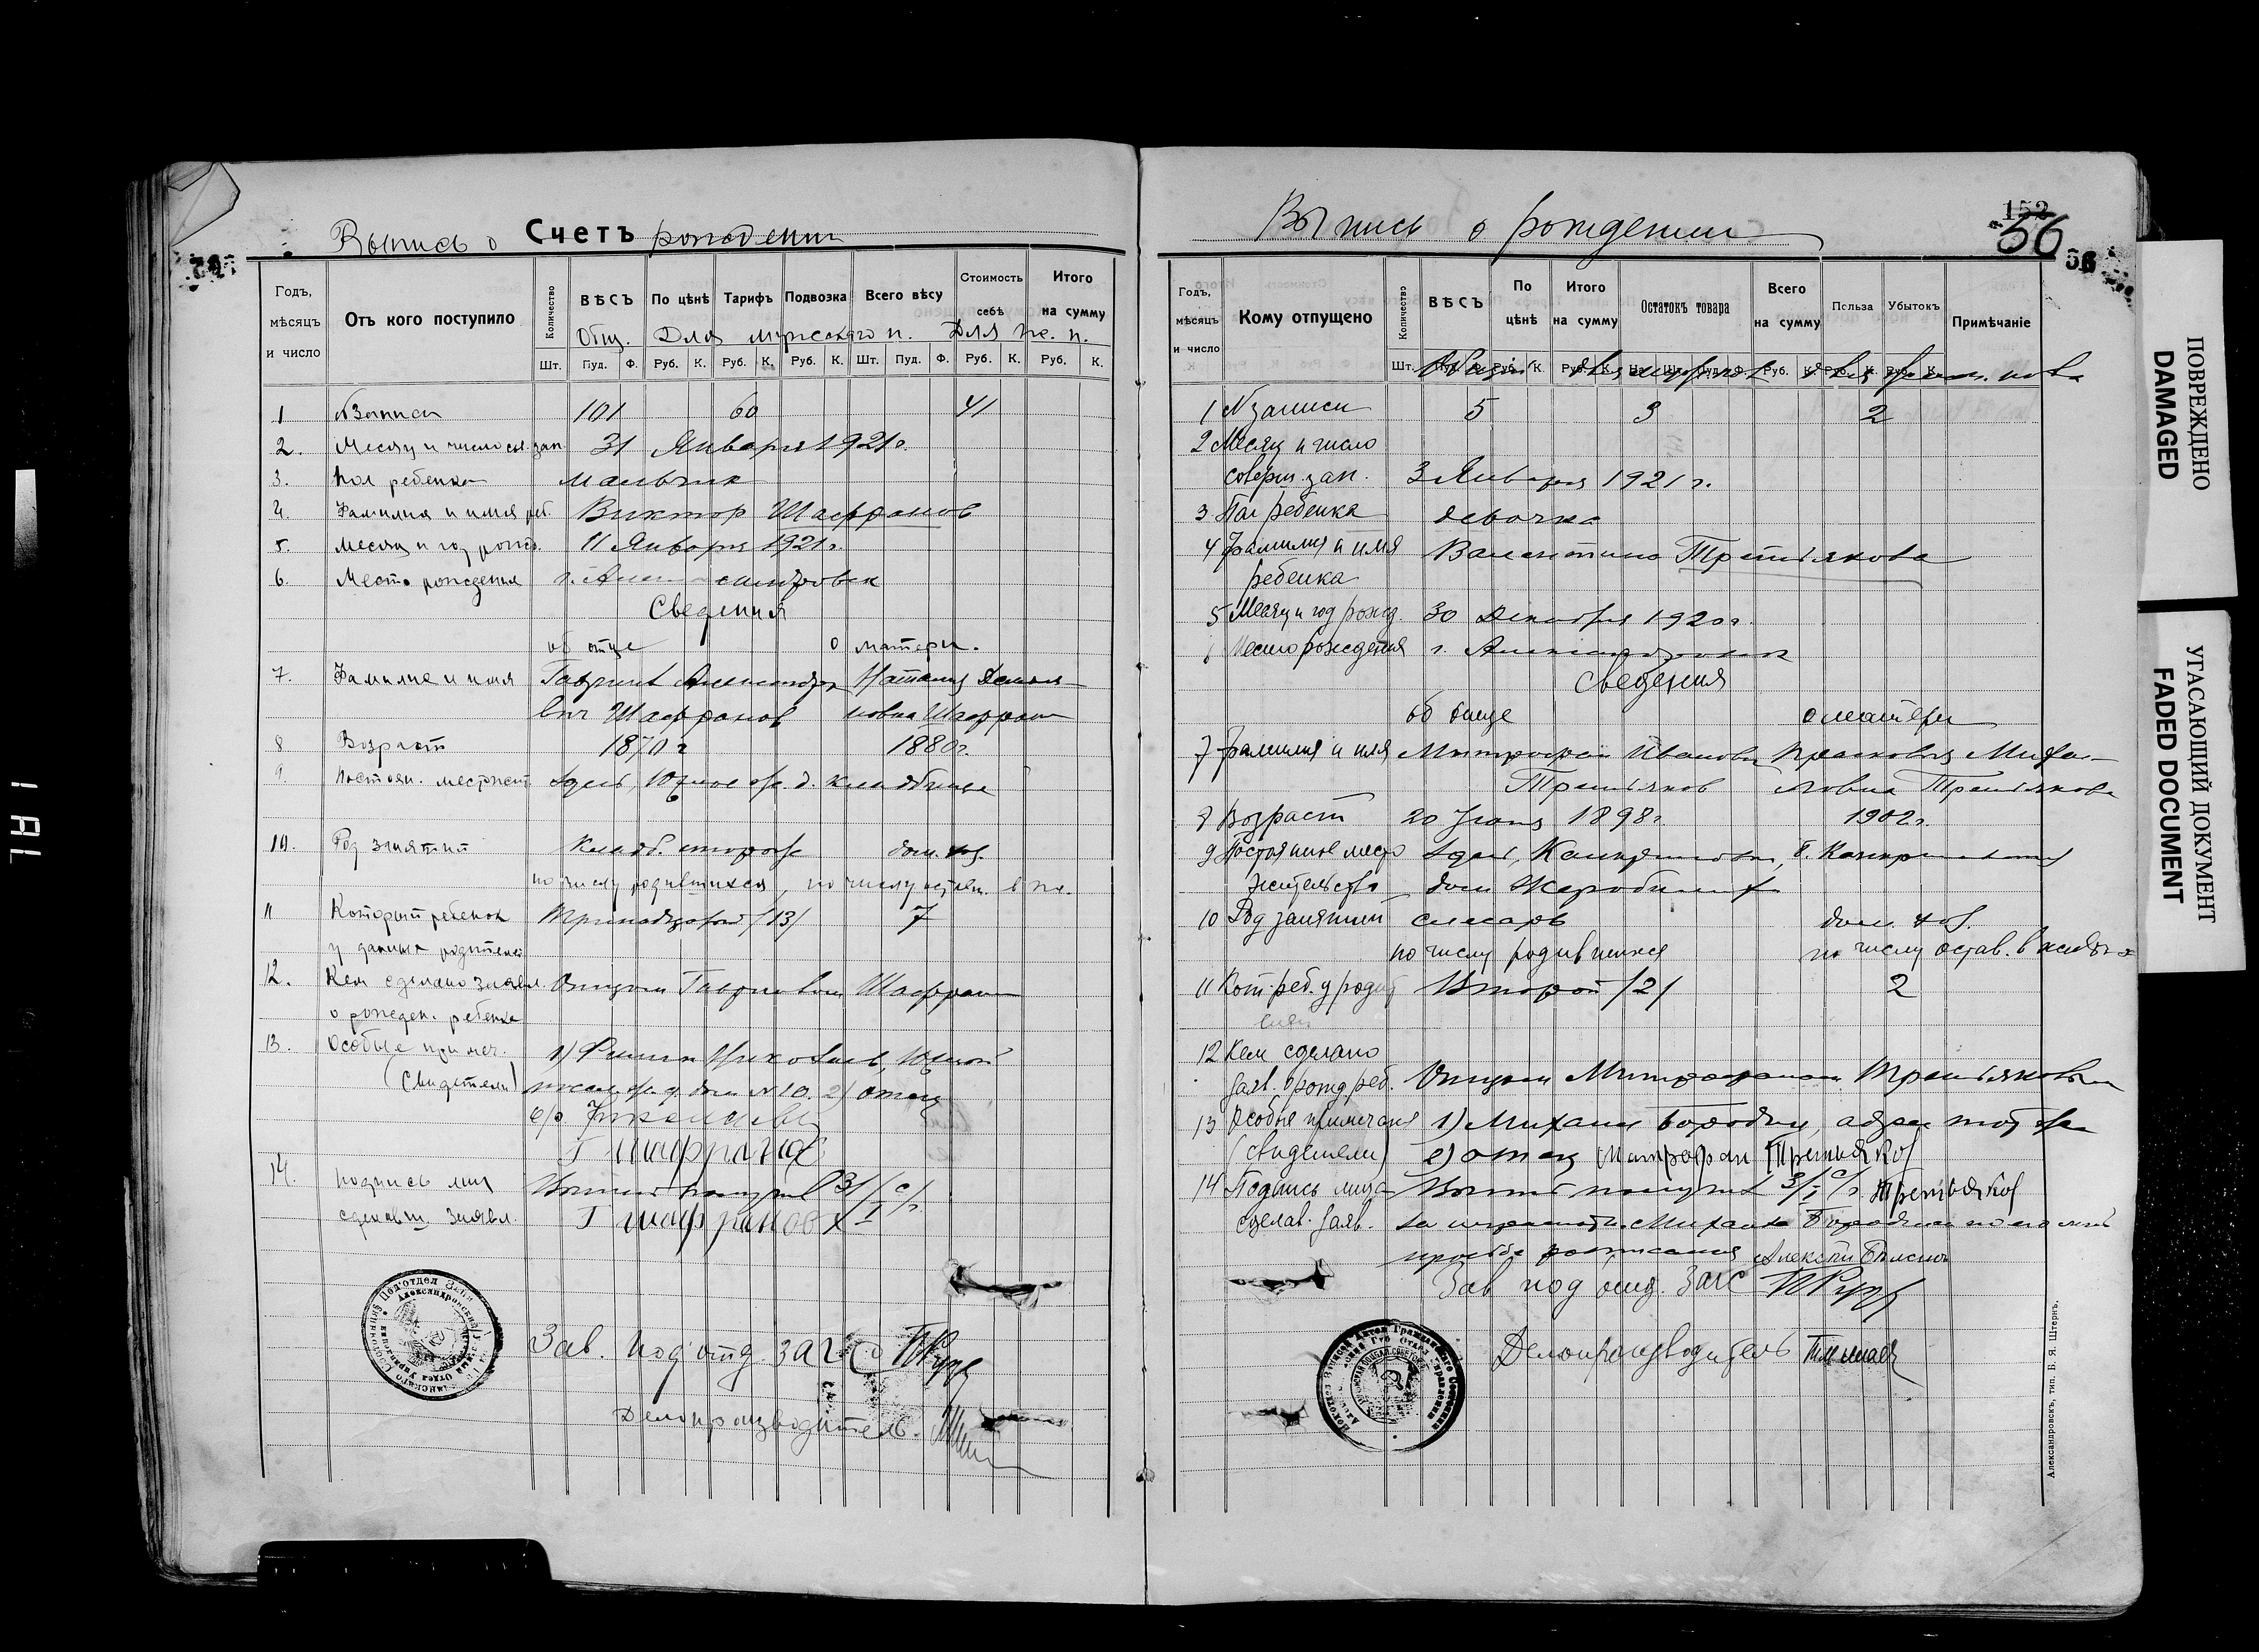 Выпись о Счетъ рождении
Годъ, мѣсяцъ и число
Отъ кого поступило
Количество
ВѢСЪ
По цѣнѣ
Тарифъ
Подвозка
Всего вѣсу
Стоимость себѣ
Итого на сумму
Общ. Для мужского п. Для ж. п.
Шт. Пуд. Ф. Руб. К. Руб. К. Руб. К. Шт. Пуд. Ф. Руб. К. Руб. К.
1 № записи 101 60 41
2. Месяц и число св. зап. 31 Января 1921 г.
3. Пол ребенка мальчик
4. Фамилия и имя реб. Виктор Шаффранов
5. Месяц и год рожд. 11 Января 1921 г.
6. Место рождения г. Александровск
Сведения
об отце о матери.
7. Фамилия и имя Гавриил Александро Наталия Демья
вич Шаффранов новна Шаффран
8 Возраст 1870 г 1880 г.
9. Постоян. местожит. Здесь, Южное кладбище
10. Род занятий Кладб. сторож дом. хоз.
по числу родившихся, по числу остав. в ж.
11 Который ребенок Тринадцатый /13/ 7
у данных родителей
12. Кем сделано заявл. Отцом Гавриилом Шаффран
о рожден. ребенка
13. Особые примеч. 1) Николаев, Южной
(Свидетели) дом № 10. 2) отец
Г Шаффранов
14. Подпись лица Выпись получил 31/I с/г.
сделавш заявл. Г Шаффранов
Зав. Под'отд. ЗАГС
Делопроизводитель.
Выпись о рождении
152
56
56
Годъ, мѣсяцъ и число
Кому отпущено
Количество
ВѢСЪ
По цѣнѣ
Итого на сумму
Остатокъ товара
Всего на сумму
Польза
Убытокъ
Примѣчаніе
Общий для мужск. для женск. пола
1 № записи 5 3 2
2 Месяц и число
соверш. зап. 3 Января 1921 г.
3 Пол ребенка девочка
4 Фамилия и имя Валентина Третьякова
ребенка
5 Месяц и год рожд. 30 Декабря 1920 г.
6 Место рождения г. Александровск
Сведения
об отце о матери
7 Фамилия и имя Митрофан Иванович Прасковья Михай
Третьяков ловна Третьякова
8 Возраст 20 1898 г. 1902 г.
9 Постоянное место Здесь,
жительства дом
10 Род занятий слесарь дом. хоз.
по числу родившихся по числу остав. в живых
11 Кот. реб. у родит Второй /2/ 2
елей
12 Кем сделано
заяв. о рожд реб. Отцом Митрофаном Третьяковым
13 Особые примечания 1) Михаил Бородин, адрес тот же
(свидетели) 2) отец Митрофан Третьяков
14 Подпись лица Выпись получил 3/I с/г. Третьяков
сделав. заяв. За неграмотн. Михаила Бородина по его личн
просьбе расписался Алексей
Зав под'отд. ЗАГС
Делопроизводитель
Александровскъ, тип. Б. Я. Штернъ.
ПОВРЕЖДЕНО
DAMAGED
УГАСАЮЩИЙ ДОКУМЕНТ
FADED DOCUMENT